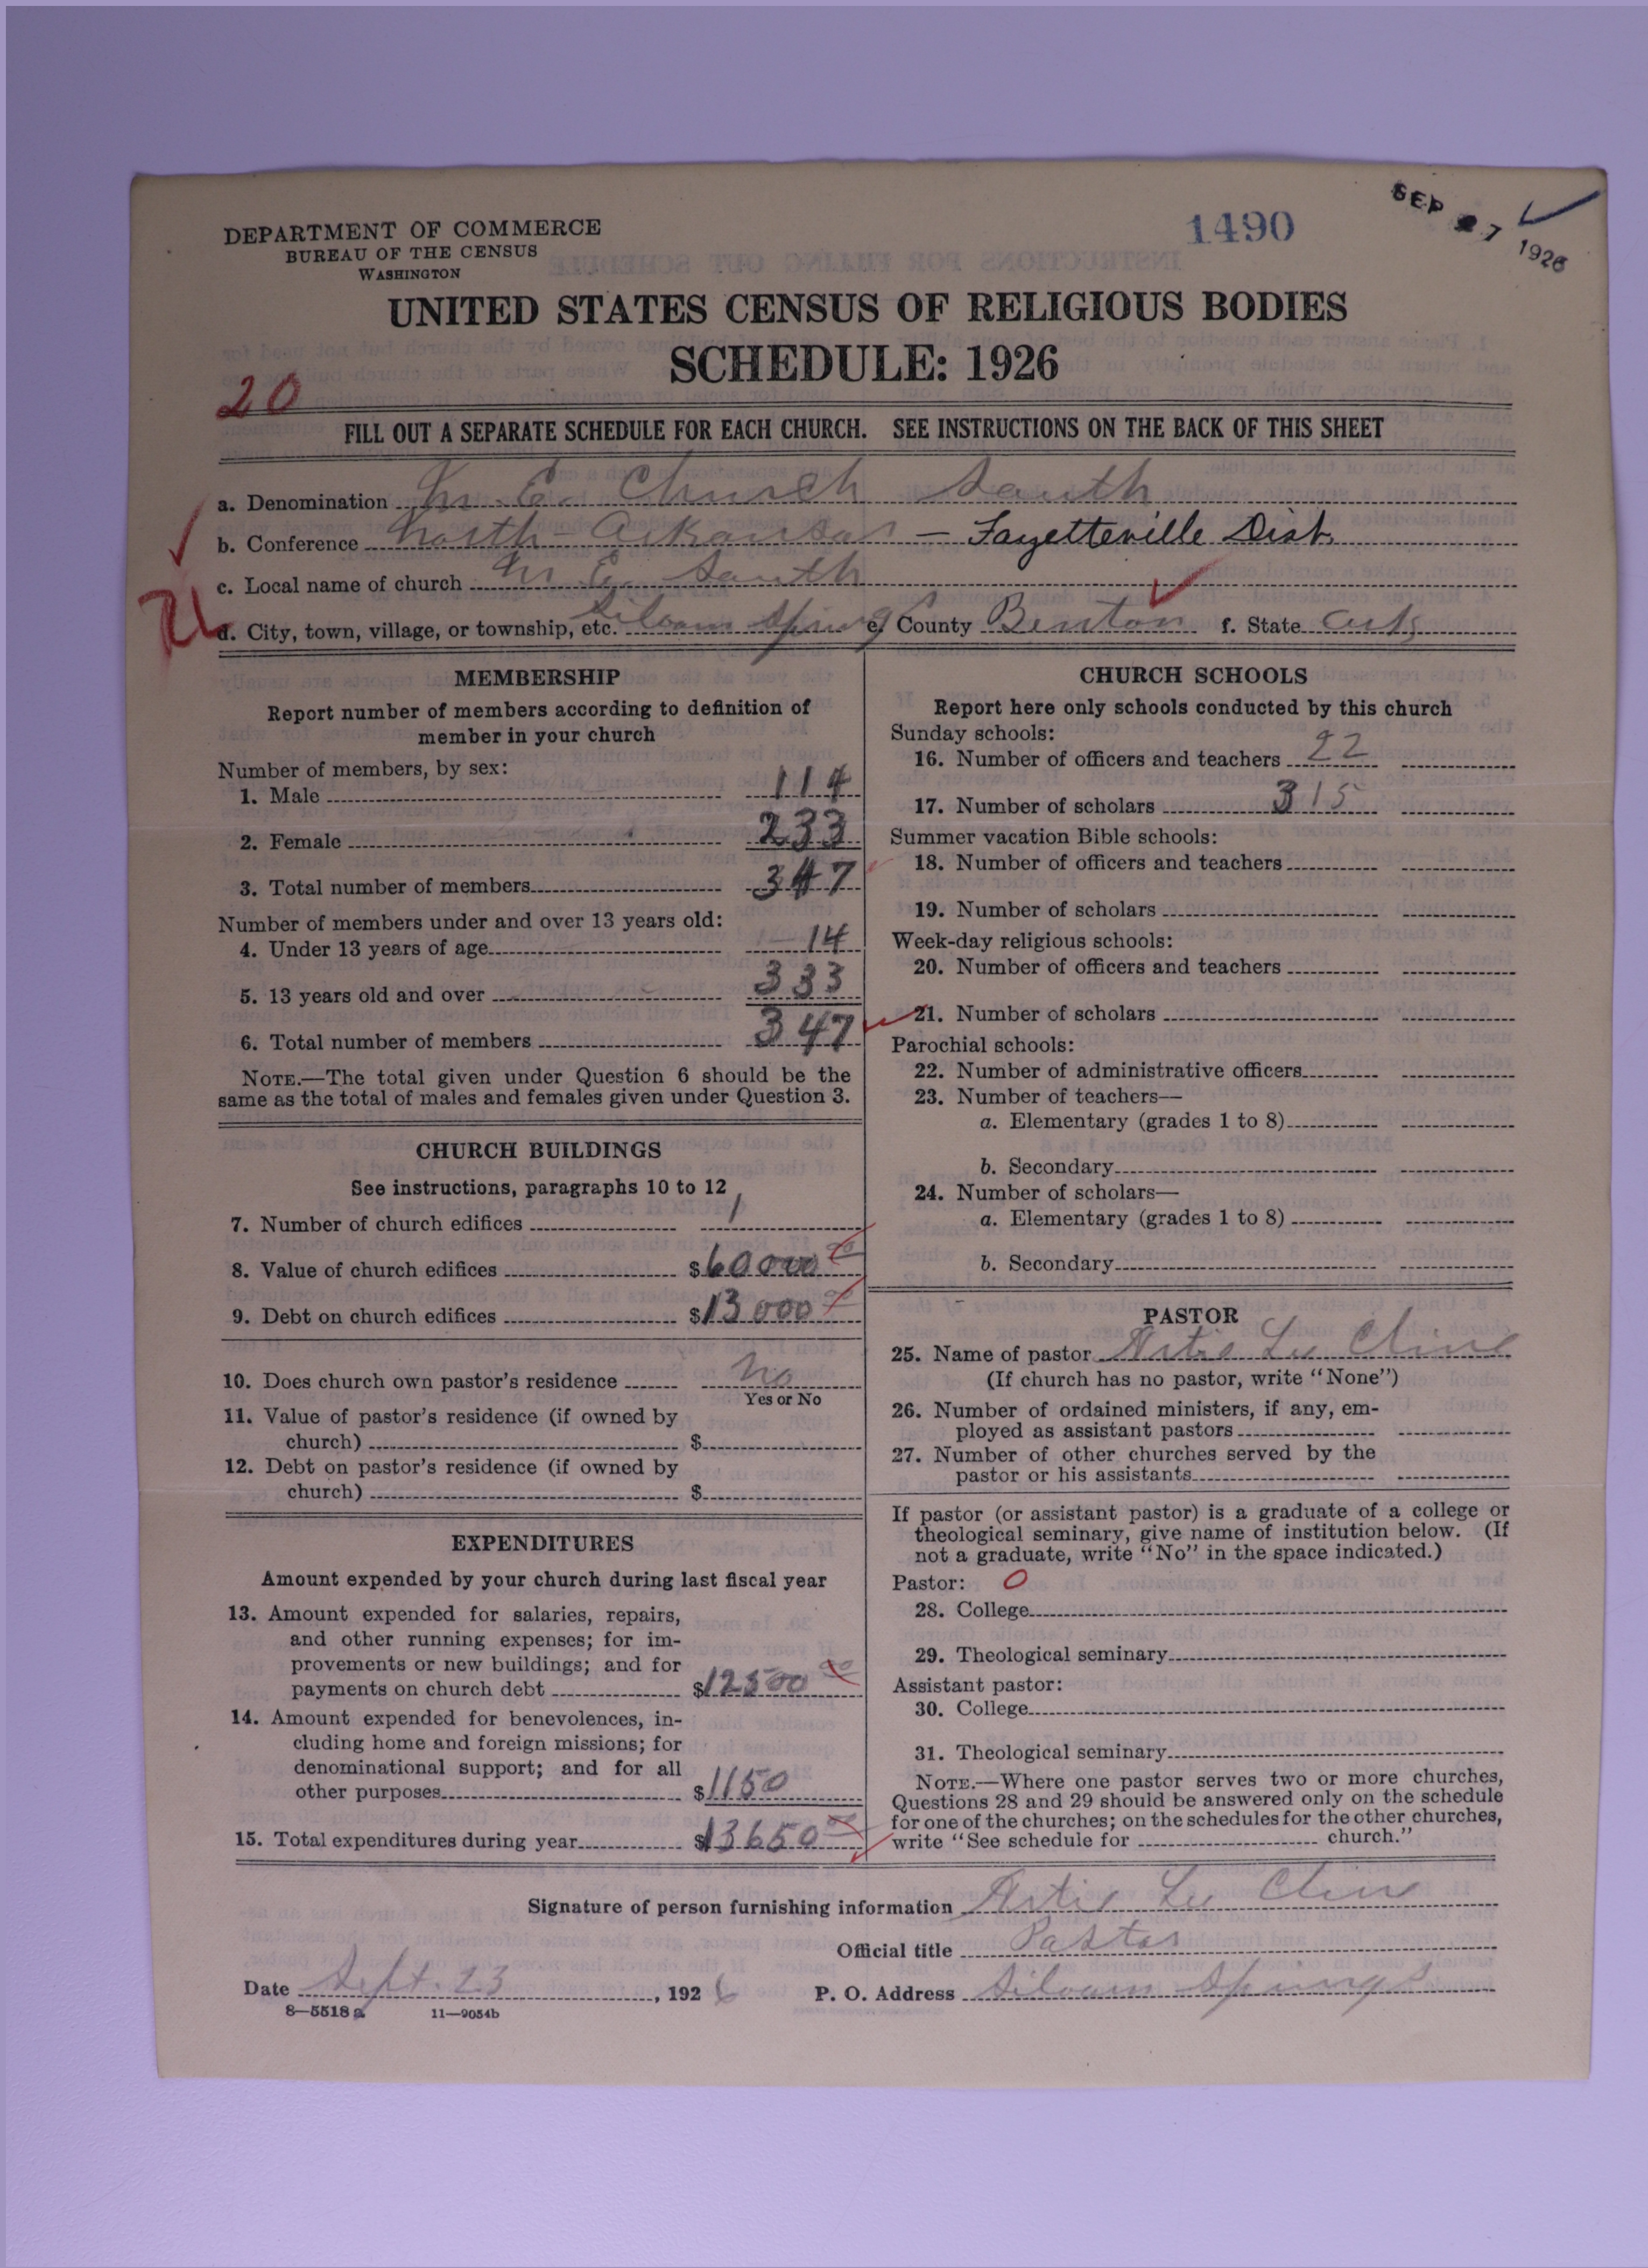 DEPARTMENT OF COMMERCE
BUREAU OF THE CENSUS
WASHINGTON
1490
SEP 27 1926
UNITED STATES CENSUS OF RELIGIOUS BODIES
SCHEDULE: 1926
20
FILL OUT A SEPARATE SCHEDULE FOR EACH CHURCH. SEE INSTRUCTIONS ON THE BACK OF THIS SHEET
a. Denomination M. E. Church South
b. Conference North Arkansas – Fayetteville Dist.
c. Local name of church M. E. South
d. City, town, village, or township, etc. Siloam Springs e. County Benton f. State Ark
MEMBERSHIP
Report number of members according to definition of
member in your church
Number of members, by sex:
1. Male 114
2. Female 233
3. Total number of members 347
Number of members under and over 13 years old:
4. Under 13 years of age 14
5. 13 years old and over 333
6. Total number of members 347
NOTE.—The total given under Question 6 should be the
same as the total of males and females given under Question 3.
CHURCH BUILDINGS
See instructions, paragraphs 10 to 12
7. Number of church edifices 1
8. Value of church edifices $60000 00
9. Debt on church edifices $13000 00
10. Does church own pastor's residence No
Yes or No
11. Value of pastor's residence (if owned by
church) $
12. Debt on pastor's residence (if owned by
church) $
EXPENDITURES
Amount expended by your church during last fiscal year
13. Amount expended for salaries, repairs,
and other running expenses; for im-
provements or new buildings; and for
payments on church debt $12500 00
14. Amount expended for benevolences, in-
cluding home and foreign missions; for
denominational support; and for all
other purposes $1150
15. Total expenditures during year $13650 00
CHURCH SCHOOLS
Report here only schools conducted by this church
Sunday schools:
16. Number of officers and teachers 22
17. Number of scholars 315
Summer vacation Bible schools:
18. Number of officers and teachers
19. Number of scholars
Week-day religious schools:
20. Number of officers and teachers
21. Number of scholars
Parochial schools:
22. Number of administrative officers
23. Number of teachers—
a. Elementary (grades 1 to 8)
b. Secondary
24. Number of scholars—
a. Elementary (grades 1 to 8)
b. Secondary
PASTOR
25. Name of pastor Artie Lee Cline
(If church has no pastor, write "None")
26. Number of ordained ministers, if any, em-
ployed as assistant pastors
27. Number of other churches served by the
pastor or his assistants
If pastor (or assistant pastor) is a graduate of a college or
theological seminary, give name of institution below. (If
not a graduate, write "No" in the space indicated.)
Pastor: 0
28. College
29. Theological seminary
Assistant pastor:
30. College
31. Theological seminary
NOTE.—Where one pastor serves two or more churches,
Questions 28 and 29 should be answered only on the schedule
for one of the churches; on the schedules for the other churches,
write "See schedule for church."
Signature of person furnishing information Artie Lee Cline
Official title Pastor
Date Sept. 23, 1926 P. O. Address Siloam Springs
8—5518 a 11—9054b